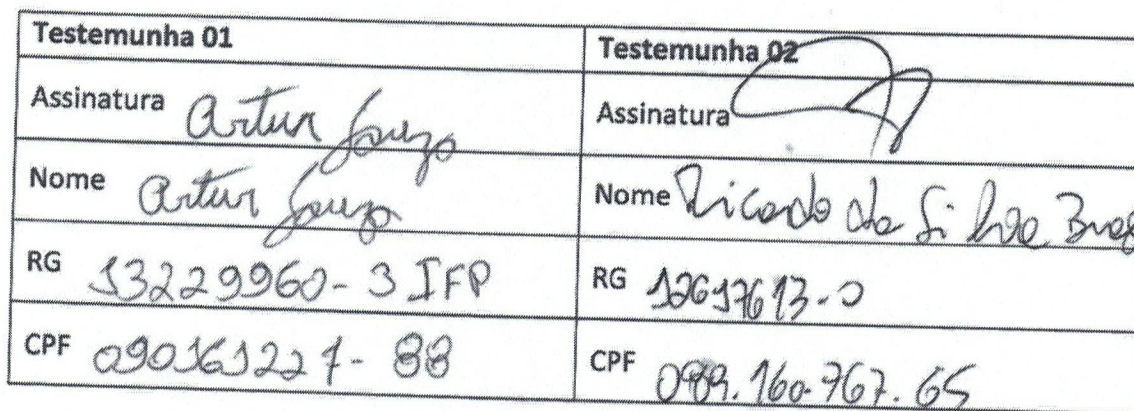 Testemunha 01
Testemunha 02
Assinatura Artur Souza
Assinatura
Nome Artur Souza
Nome Ricardo da Silva
RG 13229960-3 IFP
RG 12617613-0
CPF 090161227-88
CPF 089.160.767.65